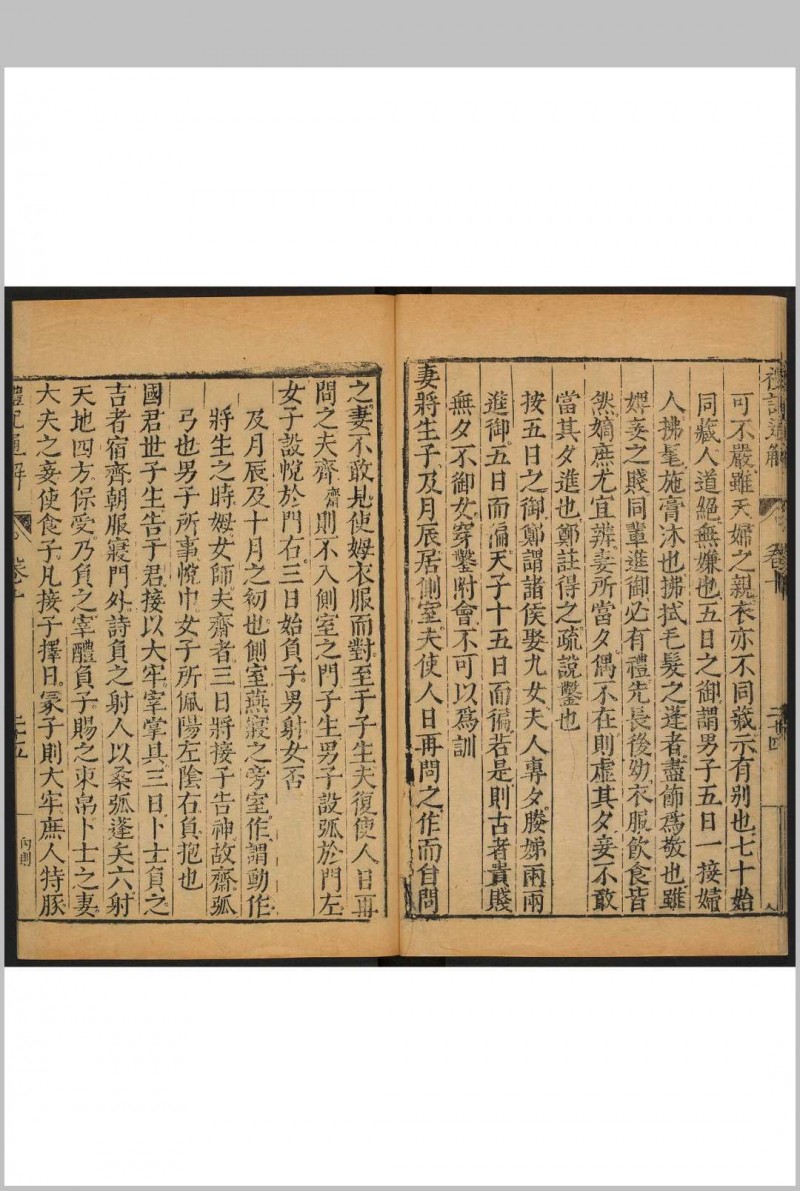 禮記通解
卷十
二十四
可不嚴雖夫婦之親衣亦不同藏示有別也七十始
同藏人道絕無嫌也五日之御謂男子五日一接婦
人拂髦施膏沐也拂拭毛髮之蓬者盡飾爲敬也雖
婢妾之賤同輩進御必有禮先長後幼衣服飲食皆
然嫡庶尤宜辨妻所當夕偶不在則虛其夕妾不敢
當其夕進也鄭註得之疏說鑿也
按五日之御鄭謂諸侯娶九女夫人專夕媵娣兩兩
進御五日而徧天子十五日而徧若是則古者貴賤
無夕不御女穿鑿附會不可以爲訓
妻將生子及月辰居側室夫使人日再問之作而自問
之妻不敢見使姆衣服而對至于子生夫復使人日再
問之夫齊齋則不入側室之門子生男子設弧於門左
女子設帨於門右三日始負子男射女否
及月辰及十月之初也側室燕寢之旁室作謂動作
將生之時姆女師夫齋者三日將接子告神故齋弧
弓也男子所事帨巾女子所佩陽左陰右負抱也
國君世子生告于君接以大牢宰掌具三日卜士負之
吉者宿齊朝服寢門外詩負之射人以桑弧蓬矢六射
天地四方保受乃負之宰醴負子賜之束帛卜士之妻
大夫之妾使食子凡接子擇日冢子則大牢庶人特豚
禮記通解
卷十
二十五
內則